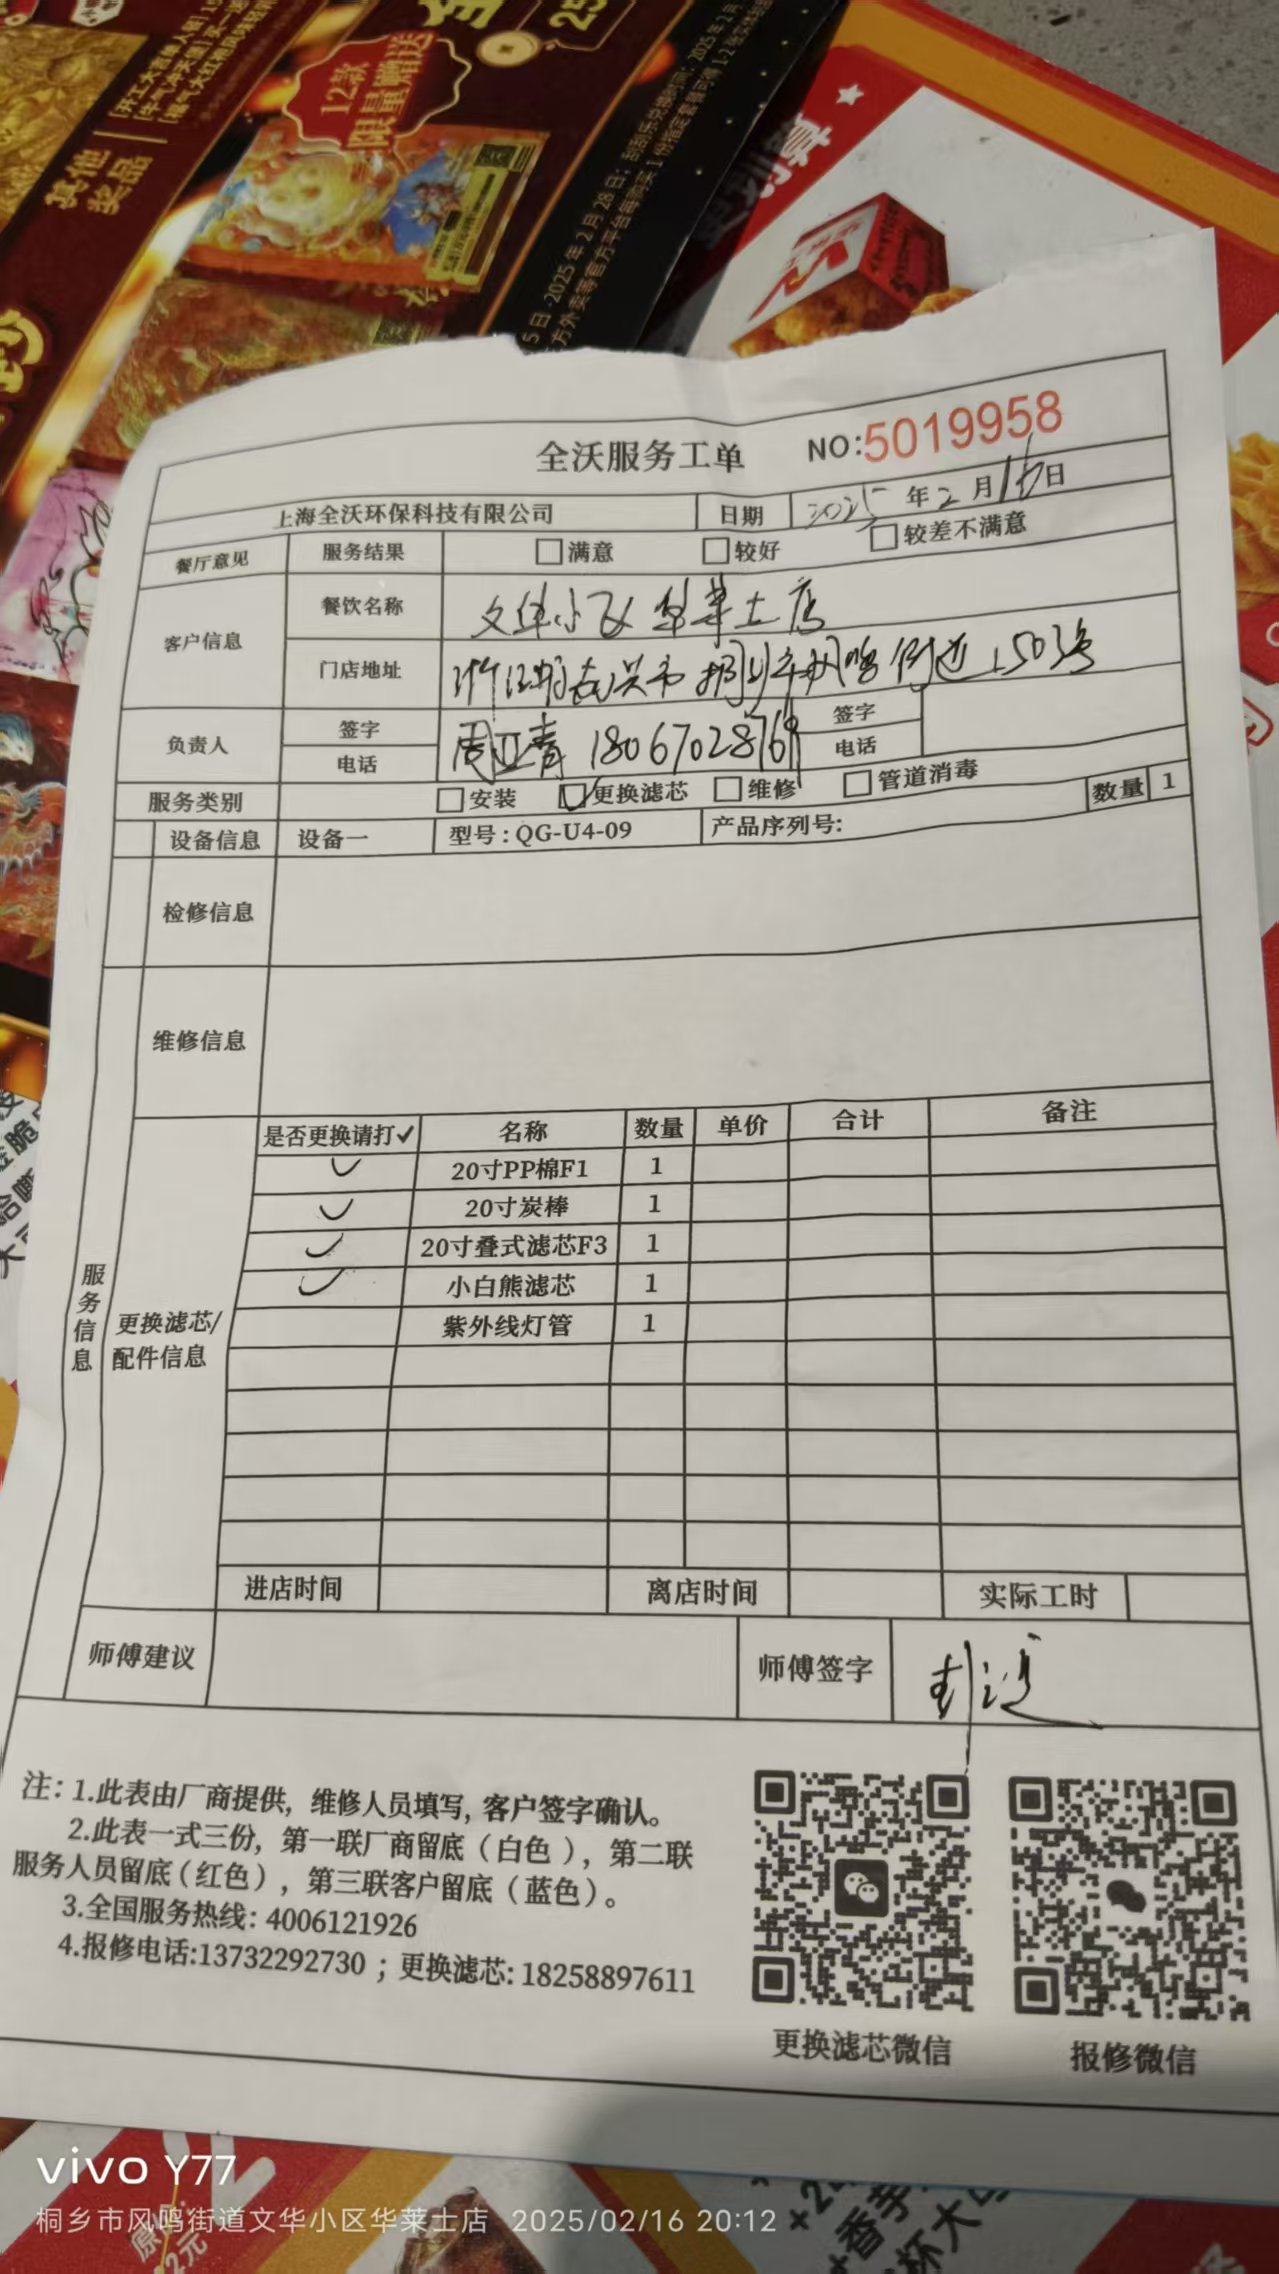 其他
奖品
12款
限量赠送
25
全沃服务工单 NO:5019958
上海全沃环保科技有限公司 日期 2025年2月16日
餐厅意见 服务结果 满意 较好 较差不满意
客户信息 餐饮名称 文华小区华莱士店
门店地址 浙江省嘉兴市桐乡市凤鸣街道1503号
负责人 签字 周亚青 签字
电话 18067028769 电话
服务类别 安装 更换滤芯 维修 管道消毒
设备信息 设备一 型号:QG-U4-09 产品序列号: 数量 1
检修信息
维修信息
服务信息
更换滤芯/
配件信息
是否更换请打✓ 名称 数量 单价 合计 备注
✓ 20寸PP棉F1 1
✓ 20寸炭棒 1
✓ 20寸叠式滤芯F3 1
✓ 小白熊滤芯 1
紫外线灯管 1
进店时间 离店时间 实际工时
师傅建议 师傅签字
注：1.此表由厂商提供, 维修人员填写, 客户签字确认。
2.此表一式三份，第一联厂商留底（白色），第二联
服务人员留底（红色），第三联客户留底（蓝色）。
3.全国服务热线: 4006121926
4.报修电话:13732292730；更换滤芯: 18258897611
更换滤芯微信 报修微信
vivo Y77
桐乡市凤鸣街道文华小区华莱士店 2025/02/16 20:12